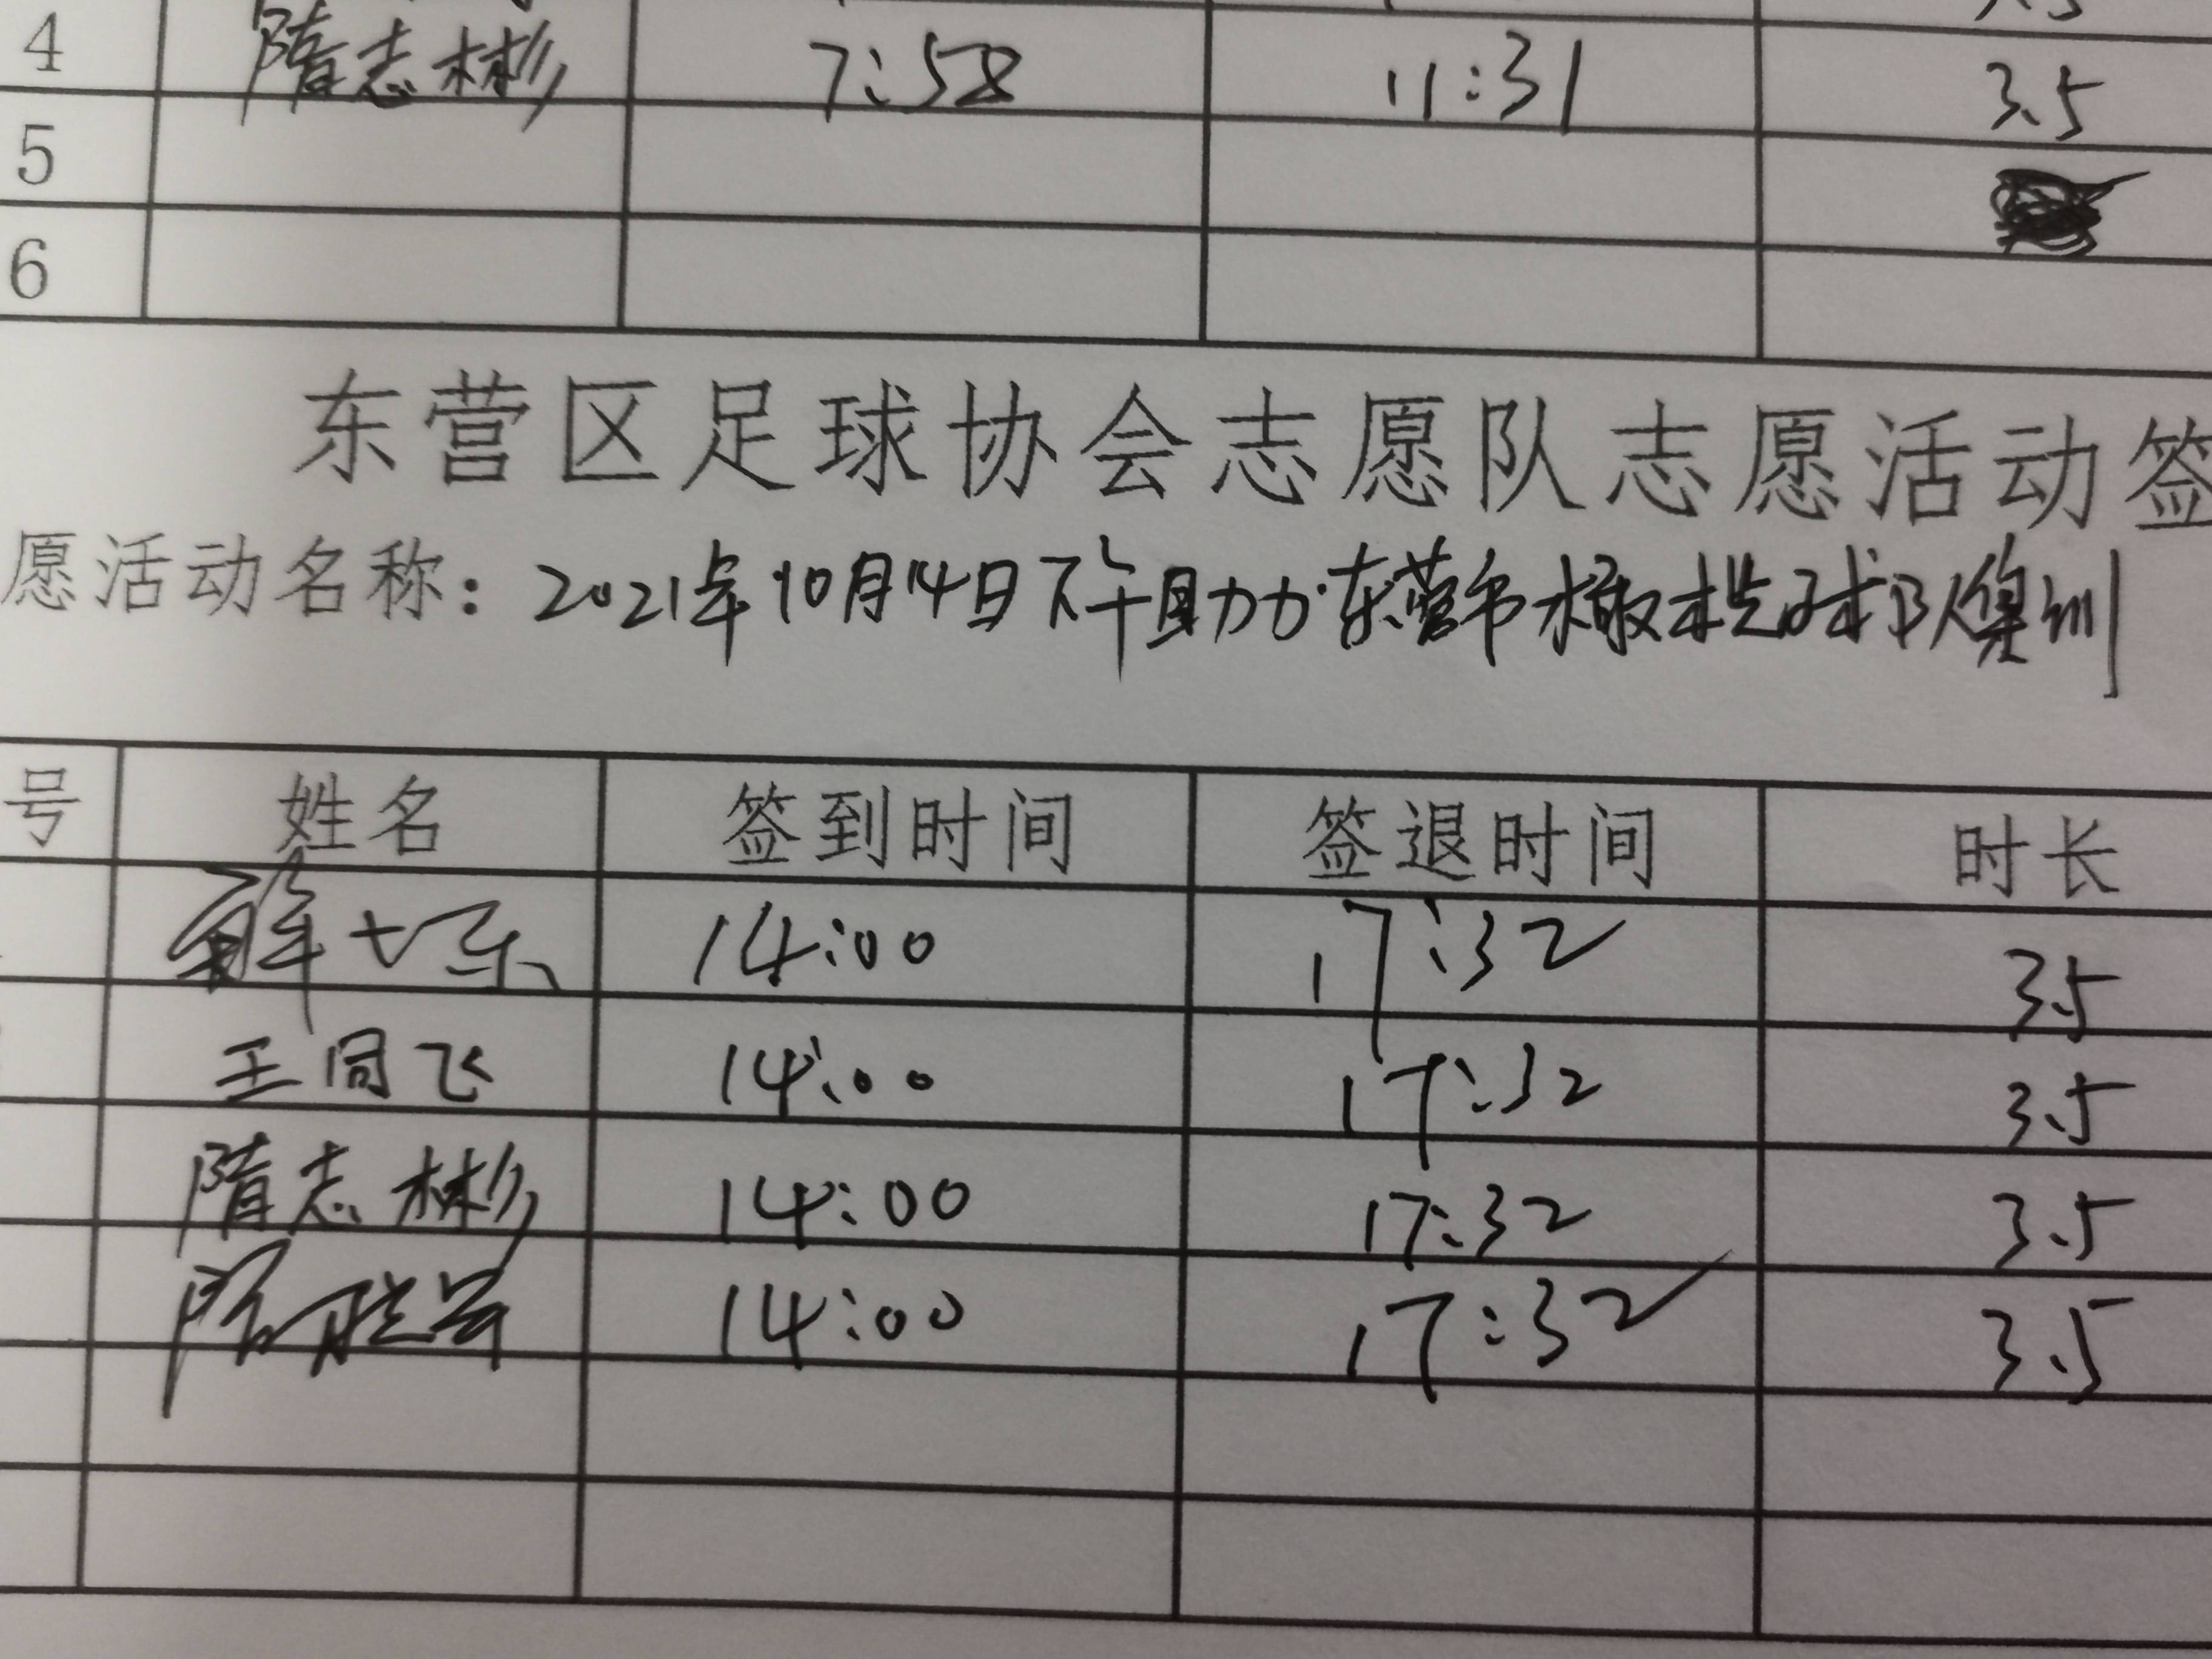 4 隋志彬 7:58 11:31 3.5
5
6
东营区足球协会志愿队志愿活动签
愿活动名称：2021年10月14日下午助力东营市橄榄球队集训
号 姓名 签到时间 签退时间 时长
14:00 17:32 3.5
王同飞 14:00 17:32 3.5
隋志彬 14:00 17:32 3.5
14:00 17:32 3.5